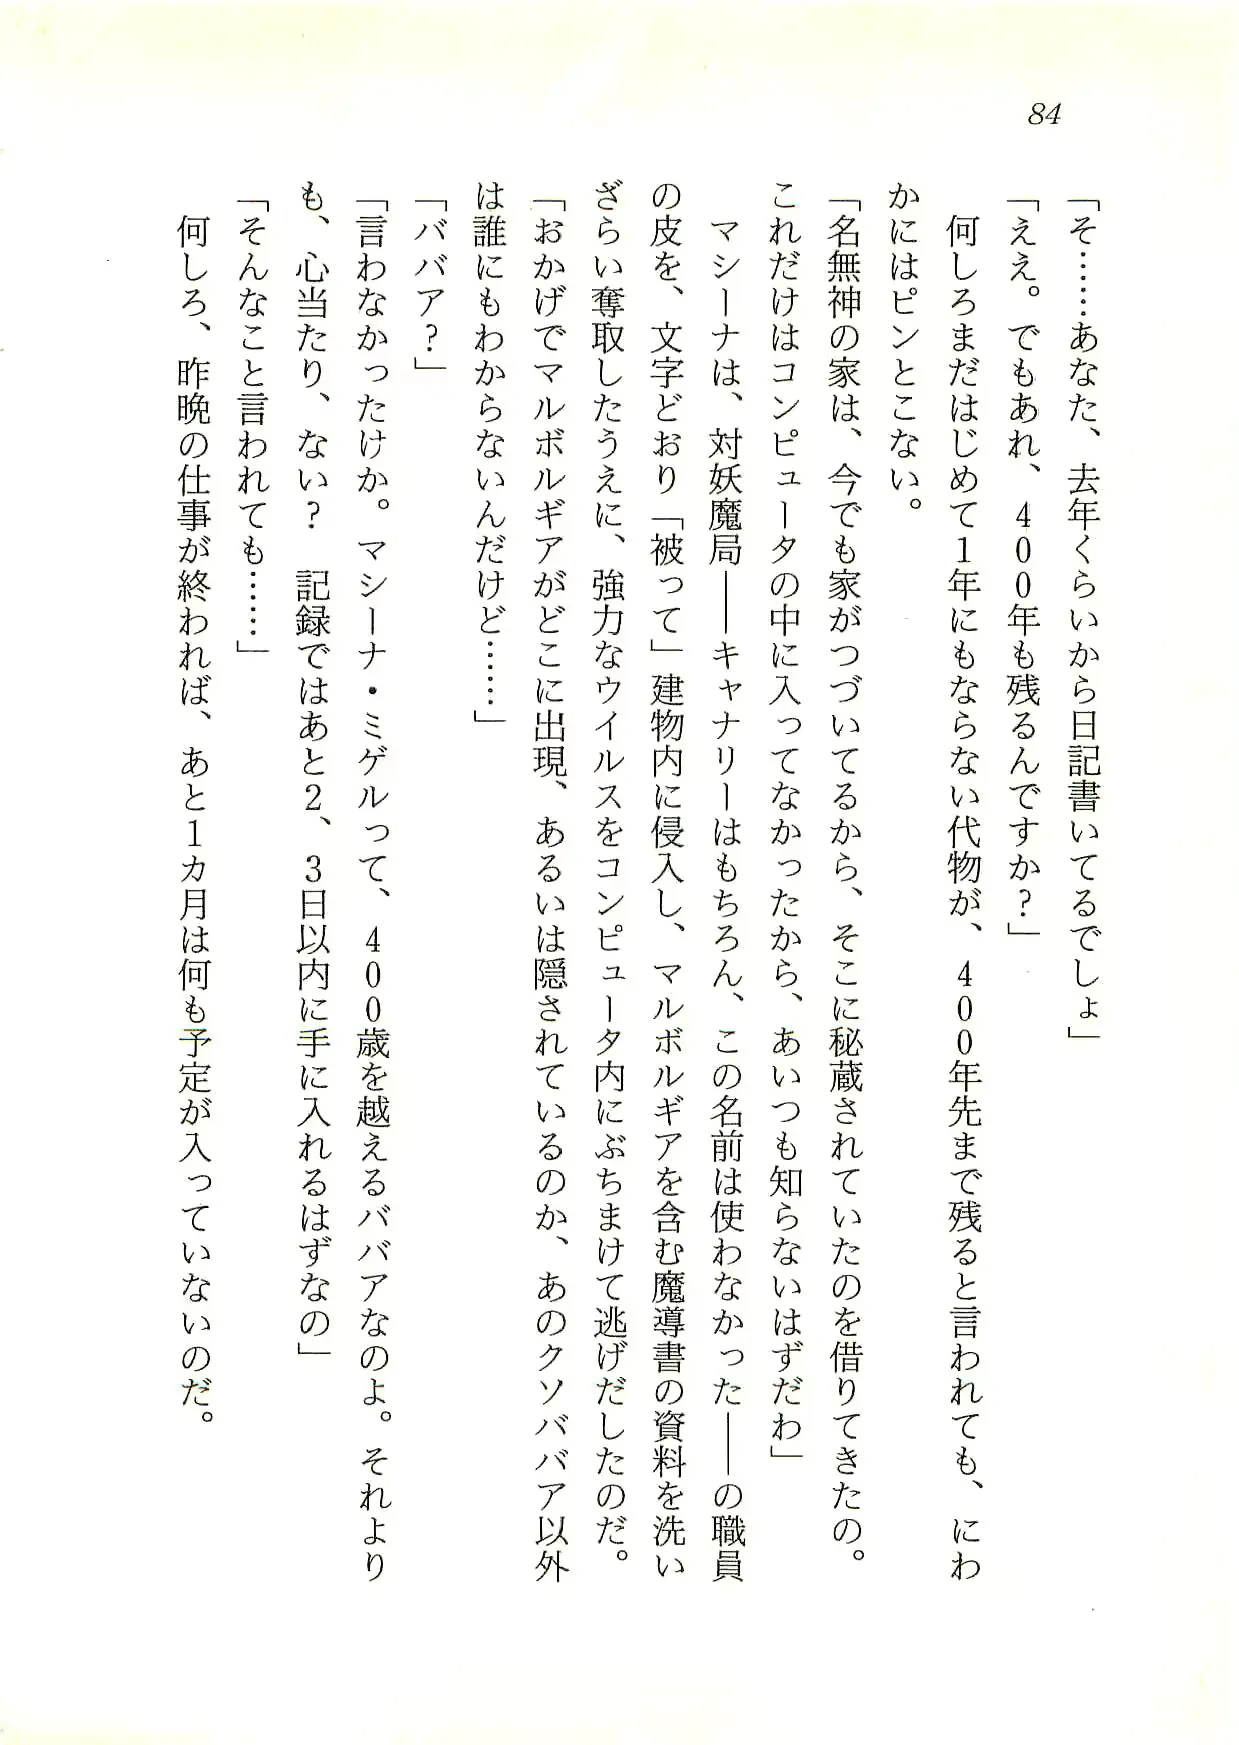 84
「そ……あなた、去年くらいから日記書いてるでしょ」
「ええ。でもあれ、400年も残るんですか?」
　何しろまだはじめて1年にもならない代物が、400年先まで残ると言われても、にわ
かにはピンとこない。
「名無神の家は、今でも家がつづいてるから、そこに秘蔵されていたのを借りてきたの。
これだけはコンピュータの中に入ってなかったから、あいつも知らないはずだわ」
　マシーナは、対妖魔局――キャナリーはもちろん、この名前は使わなかった――の職員
の皮を、文字どおり「被って」建物内に侵入し、マルボルギアを含む魔導書の資料を洗い
ざらい奪取したうえに、強力なウイルスをコンピュータ内にぶちまけて逃げだしたのだ。
「おかげでマルボルギアがどこに出現、あるいは隠されているのか、あのクソババア以外
は誰にもわからないんだけど……」
「ババア?」
「言わなかったけか。マシーナ・ミゲルって、400歳を越えるババアなのよ。それより
も、心当たり、ない?　記録ではあと2、3日以内に手に入れるはずなの」
「そんなこと言われても……」
　何しろ、昨晩の仕事が終われば、あと1カ月は何も予定が入っていないのだ。